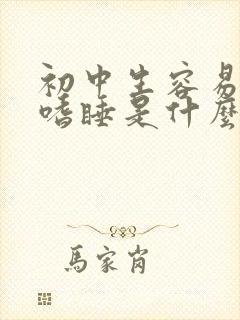 初中生容易
嗜睡是什麼
馬家肖